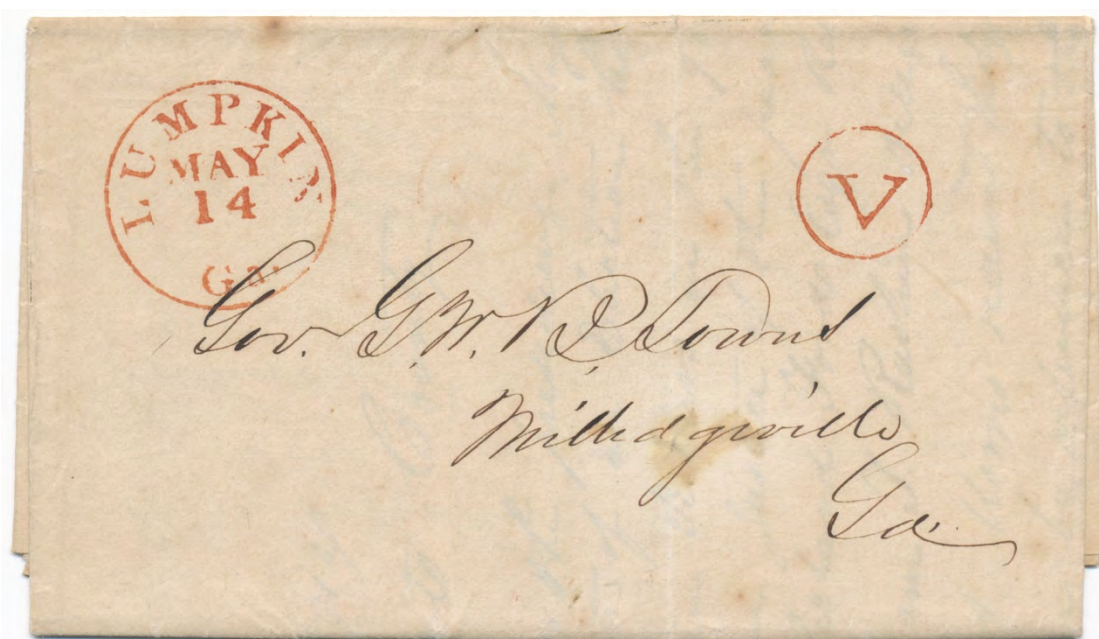 LUMPKIN
MAY
14
Ga.
V
Gov. G. W. B. Towns
Milledgeville
Ga.